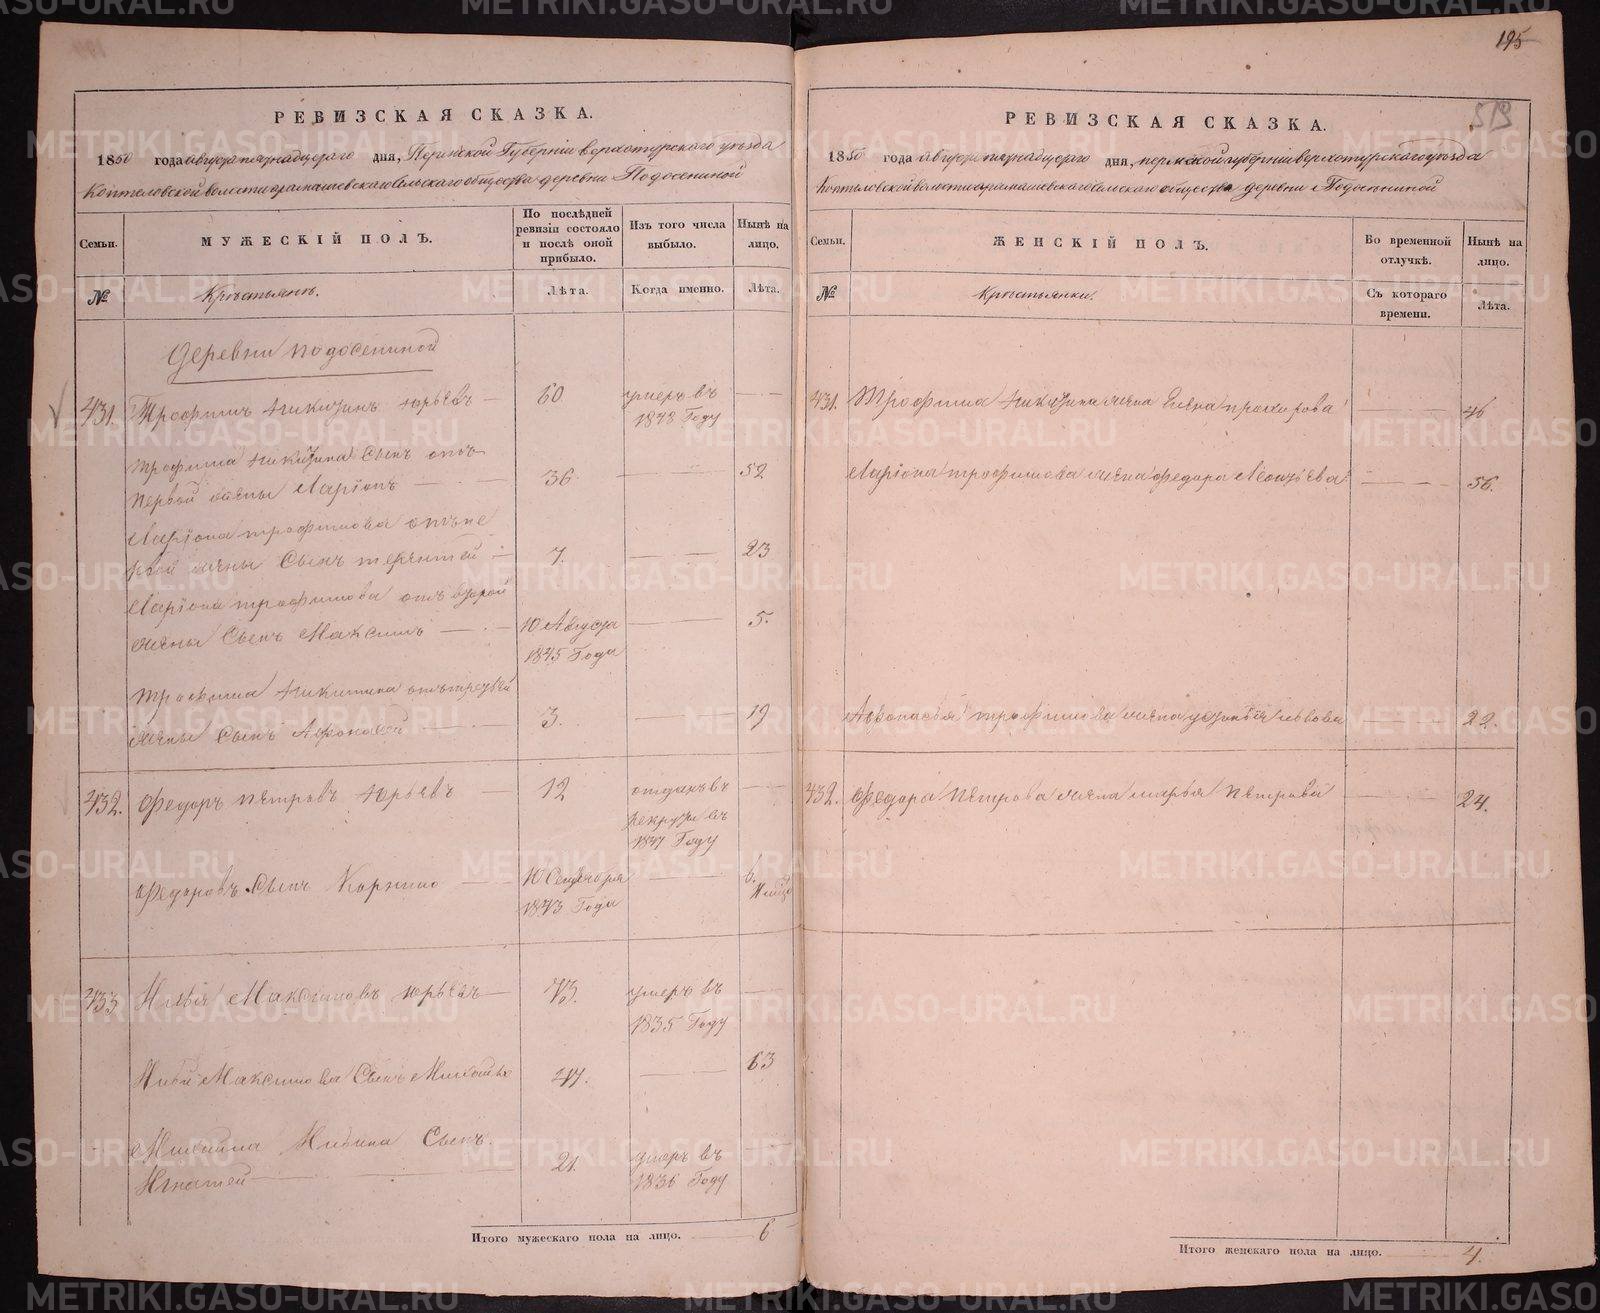 195
519
РЕВИЗСКАЯ СКАЗКА.
1850 года августа пятнадцатаго дня, Пермской Губерніи верхотурскаго уѣзда
Коптеловской волости арамашевскаго сельскаго общества деревни Подосениной
Семьи.
МУЖЕСКІЙ ПОЛЪ.
По послѣдней ревизіи состояло и послѣ оной прибыло.
Изъ того числа выбыло.
Нынѣ на лицо.
№
Крестьянъ.
Лѣта.
Когда именно.
Лѣта.
деревни подосениной
431. Трофимъ Никитинъ юрьевъ — 60. умеръ въ
1848 Году
трофима никитина Сынъ отъ
первой жены Ларіонъ — 36. — 52
Ларіона трофимова отъ пе
рвой жены Сынъ терентей — 7. — 23
Ларіона трофимова отъ второй
жены Сынъ Максимъ — 10 Августа — 5.
1845 Года
трофима никитина отъ третьей
жены Сынъ Афонасей — 3. — 19
432. Федоръ петровъ юрьевъ — 12 отданъ въ —
рекруты въ
1847 Году
Федоровъ Сынъ — 10 Сентября — 6.
1843 Года
433 Максимовъ юрьевъ — 73. умеръ въ —
1835 Году
Максимова Сынъ — 47. — 63
Сынъ
Игнатей — 21. умеръ въ —
1836 Году
Итого мужескаго пола на лицо. 6
РЕВИЗСКАЯ СКАЗКА.
1850 года августа пятнадцатаго дня, пермской губерніи верхотурскаго уѣзда
Коптеловской волости арамашевскаго сельскаго общества деревни Подосениной
Семьи.
ЖЕНСКІЙ ПОЛЪ.
Во временной отлучкѣ.
Нынѣ на лицо.
№
Крестьянки.
Съ котораго времени.
Лѣта.
431. Трофима Никитина жена Елена прохорова — 46
Ларіона трофимова жена федора Леонтьева — 56.
Афонасья трофимова жена — 22.
432. Федора Петрова жена марья Петрова — 24.
Итого женскаго пола на лицо. 4.
METRIKI.GASO-URAL.RU